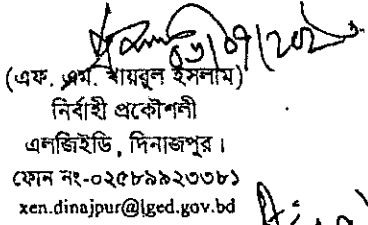 (এফ. এম. খায়রুল ইসলাম)
নির্বাহী প্রকৌশলী
এলজিইডি, দিনাজপুর।
ফোন নং-০২৫৮৯৯২৩৩৮১
xen.dinajpur@lged.gov.bd